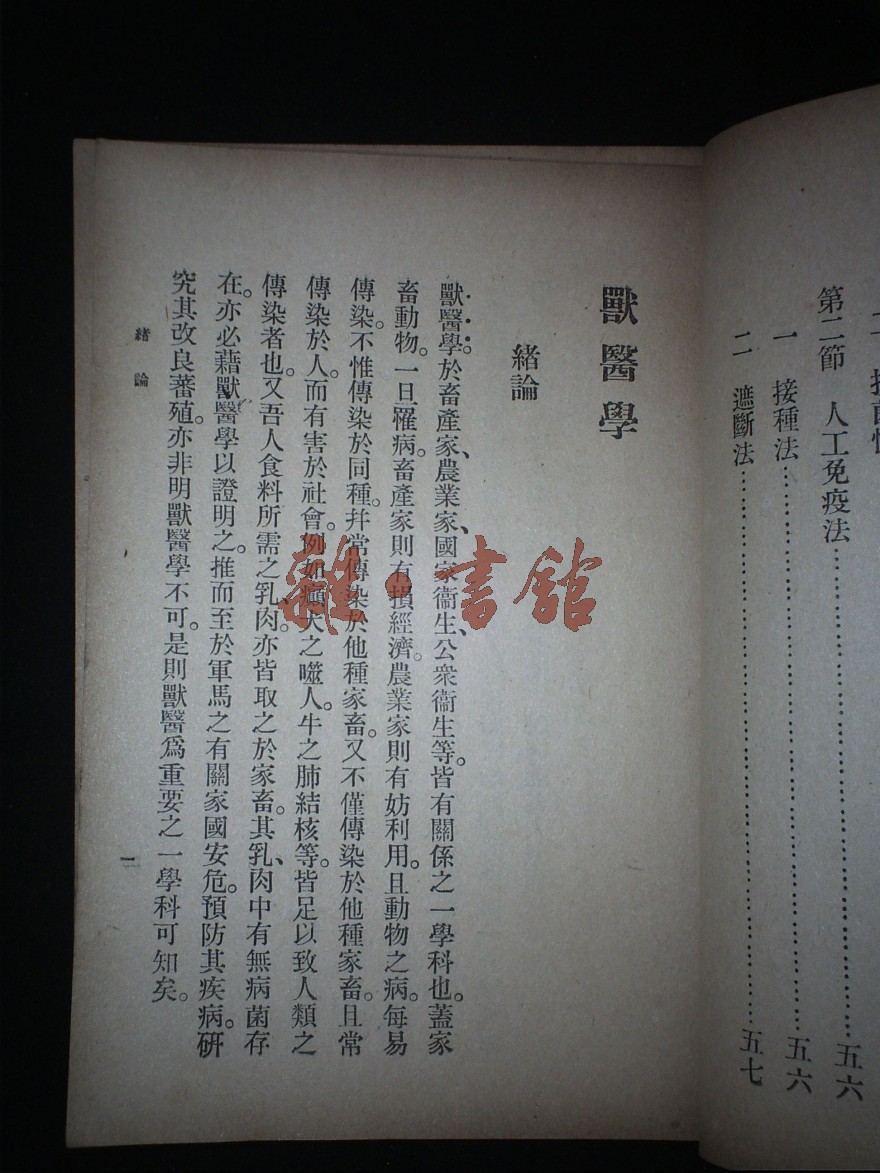 二
第二節　人工免疫法……五六
一　接種法……五六
二　遮斷法……五七
獸醫學
緒論
獸醫學。於畜產家、農業家、國家衞生、公衆衞生等。皆有關係之一學科也。蓋家
畜動物。一旦罹病。畜產家則有損經濟。農業家則有妨利用。且動物之病。每易
傳染。不惟傳染於同種。幷常傳染於他種家畜。又不僅傳染於他種家畜。且常
傳染於人。而有害於社會。例如癲犬之噬人。牛之肺結核等。皆足以致人類之
傳染者也。又吾人食料所需之乳、肉。亦皆取之於家畜。其乳、肉中有無病菌存
在。亦必藉獸醫學以證明之。推而至於軍馬之有關家國安危。預防其疾病。研
究其改良蕃殖。亦非明獸醫學不可。是則獸醫爲重要之一學科可知矣。
緒論
一
雜·書館